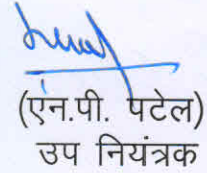 (एन.पी. पटेल)
उप नियंत्रक